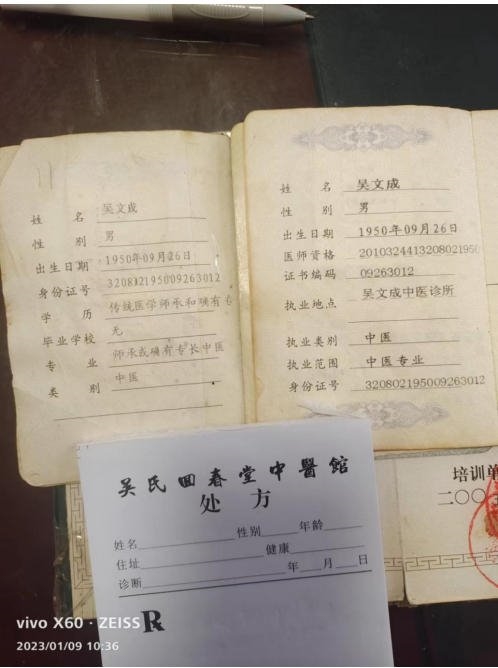 姓 名 吴文成
性 别 男
出生日期 1950年09月26日
身份证号 320802195009263012
学 历 传统医学师承和确有
毕业学校 无
专 业 师承或确有专长中医
类 别 中医
姓 名 吴文成
性 别 男
出生日期 1950年09月26日
医师资格 2010324413208021950
证书编码 09263012
执业地点 吴文成中医诊所
执业类别 中医
执业范围 中医专业
身份证号 320802195009263012
培训单
二〇〇
吴氏回春堂中醫館
处 方
姓名 性别 年龄
住址 健康
诊断 年 月 日
R
vivo X60 · ZEISS
2023/01/09 10:36